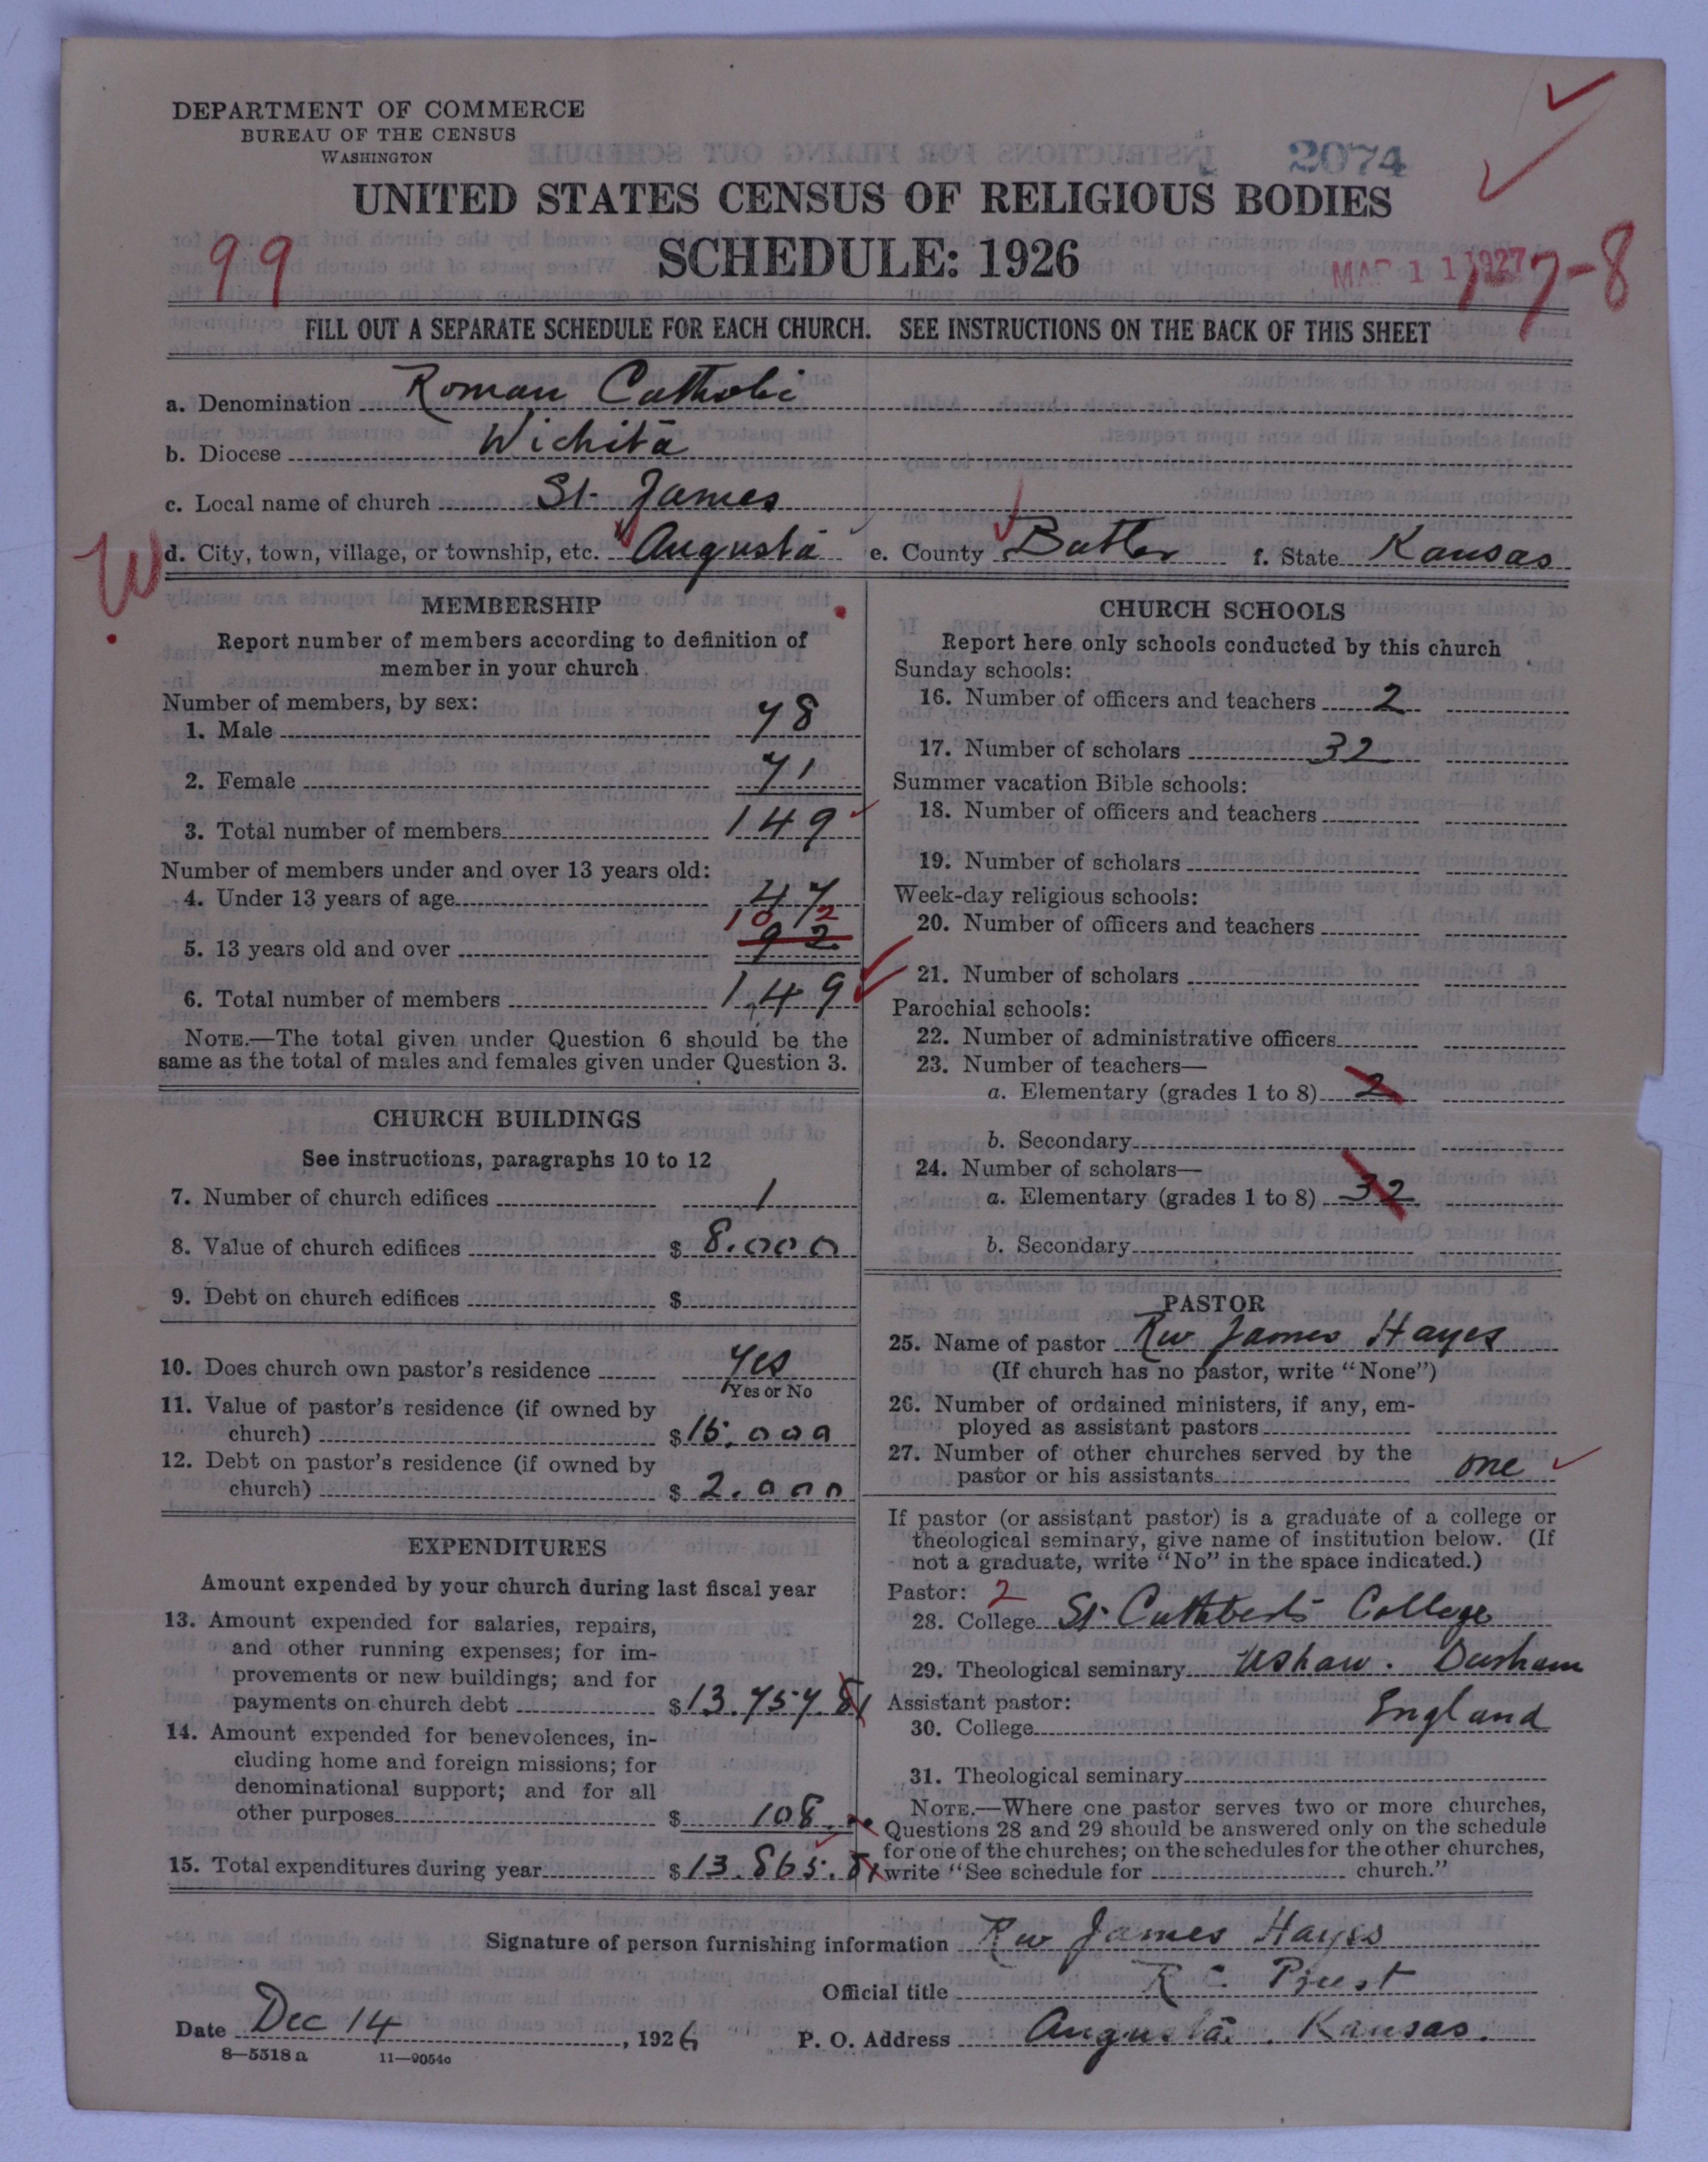 DEPARTMENT OF COMMERCE
BUREAU OF THE CENSUS
WASHINGTON
2074
UNITED STATES CENSUS OF RELIGIOUS BODIES
SCHEDULE: 1926
99
MAR 11 1927
7-8
FILL OUT A SEPARATE SCHEDULE FOR EACH CHURCH. SEE INSTRUCTIONS ON THE BACK OF THIS SHEET
a. Denomination Roman Catholic
b. Diocese Wichita
c. Local name of church St. James
W
d. City, town, village, or township, etc. Augusta e. County Butler f. State Kansas
MEMBERSHIP
Report number of members according to definition of
member in your church
Number of members, by sex:
1. Male 78
2. Female 71
3. Total number of members 149
Number of members under and over 13 years old:
4. Under 13 years of age 47
102
5. 13 years old and over 92
6. Total number of members 149
NOTE.—The total given under Question 6 should be the
same as the total of males and females given under Question 3.
CHURCH BUILDINGS
See instructions, paragraphs 10 to 12
7. Number of church edifices 1
8. Value of church edifices $ 8.000
9. Debt on church edifices $
10. Does church own pastor's residence yes
Yes or No
11. Value of pastor's residence (if owned by
church) $ 15.000
12. Debt on pastor's residence (if owned by
church) $ 2.000
EXPENDITURES
Amount expended by your church during last fiscal year
13. Amount expended for salaries, repairs,
and other running expenses; for im-
provements or new buildings; and for
payments on church debt $ 13.757.81
14. Amount expended for benevolences, in-
cluding home and foreign missions; for
denominational support; and for all
other purposes $ 108.
15. Total expenditures during year $ 13.865.81
CHURCH SCHOOLS
Report here only schools conducted by this church
Sunday schools:
16. Number of officers and teachers 2
17. Number of scholars 32
Summer vacation Bible schools:
18. Number of officers and teachers
19. Number of scholars
Week-day religious schools:
20. Number of officers and teachers
21. Number of scholars
Parochial schools:
22. Number of administrative officers
23. Number of teachers—
a. Elementary (grades 1 to 8) 2
b. Secondary
24. Number of scholars—
a. Elementary (grades 1 to 8) 32
b. Secondary
PASTOR
25. Name of pastor Rev James Hayes
(If church has no pastor, write "None")
26. Number of ordained ministers, if any, em-
ployed as assistant pastors
27. Number of other churches served by the
pastor or his assistants one
If pastor (or assistant pastor) is a graduate of a college or
theological seminary, give name of institution below. (If
not a graduate, write "No" in the space indicated.)
Pastor: 2
28. College St. Cuthbert's College
29. Theological seminary Ushaw. Durham
Assistant pastor: England
30. College
31. Theological seminary
NOTE.—Where one pastor serves two or more churches,
Questions 28 and 29 should be answered only on the schedule
for one of the churches; on the schedules for the other churches,
write "See schedule for church."
Signature of person furnishing information Rev James Hayes
Official title R.C. Priest
Date Dec 14, 1926 P. O. Address Augusta. Kansas.
8—5318 a 11—9054c